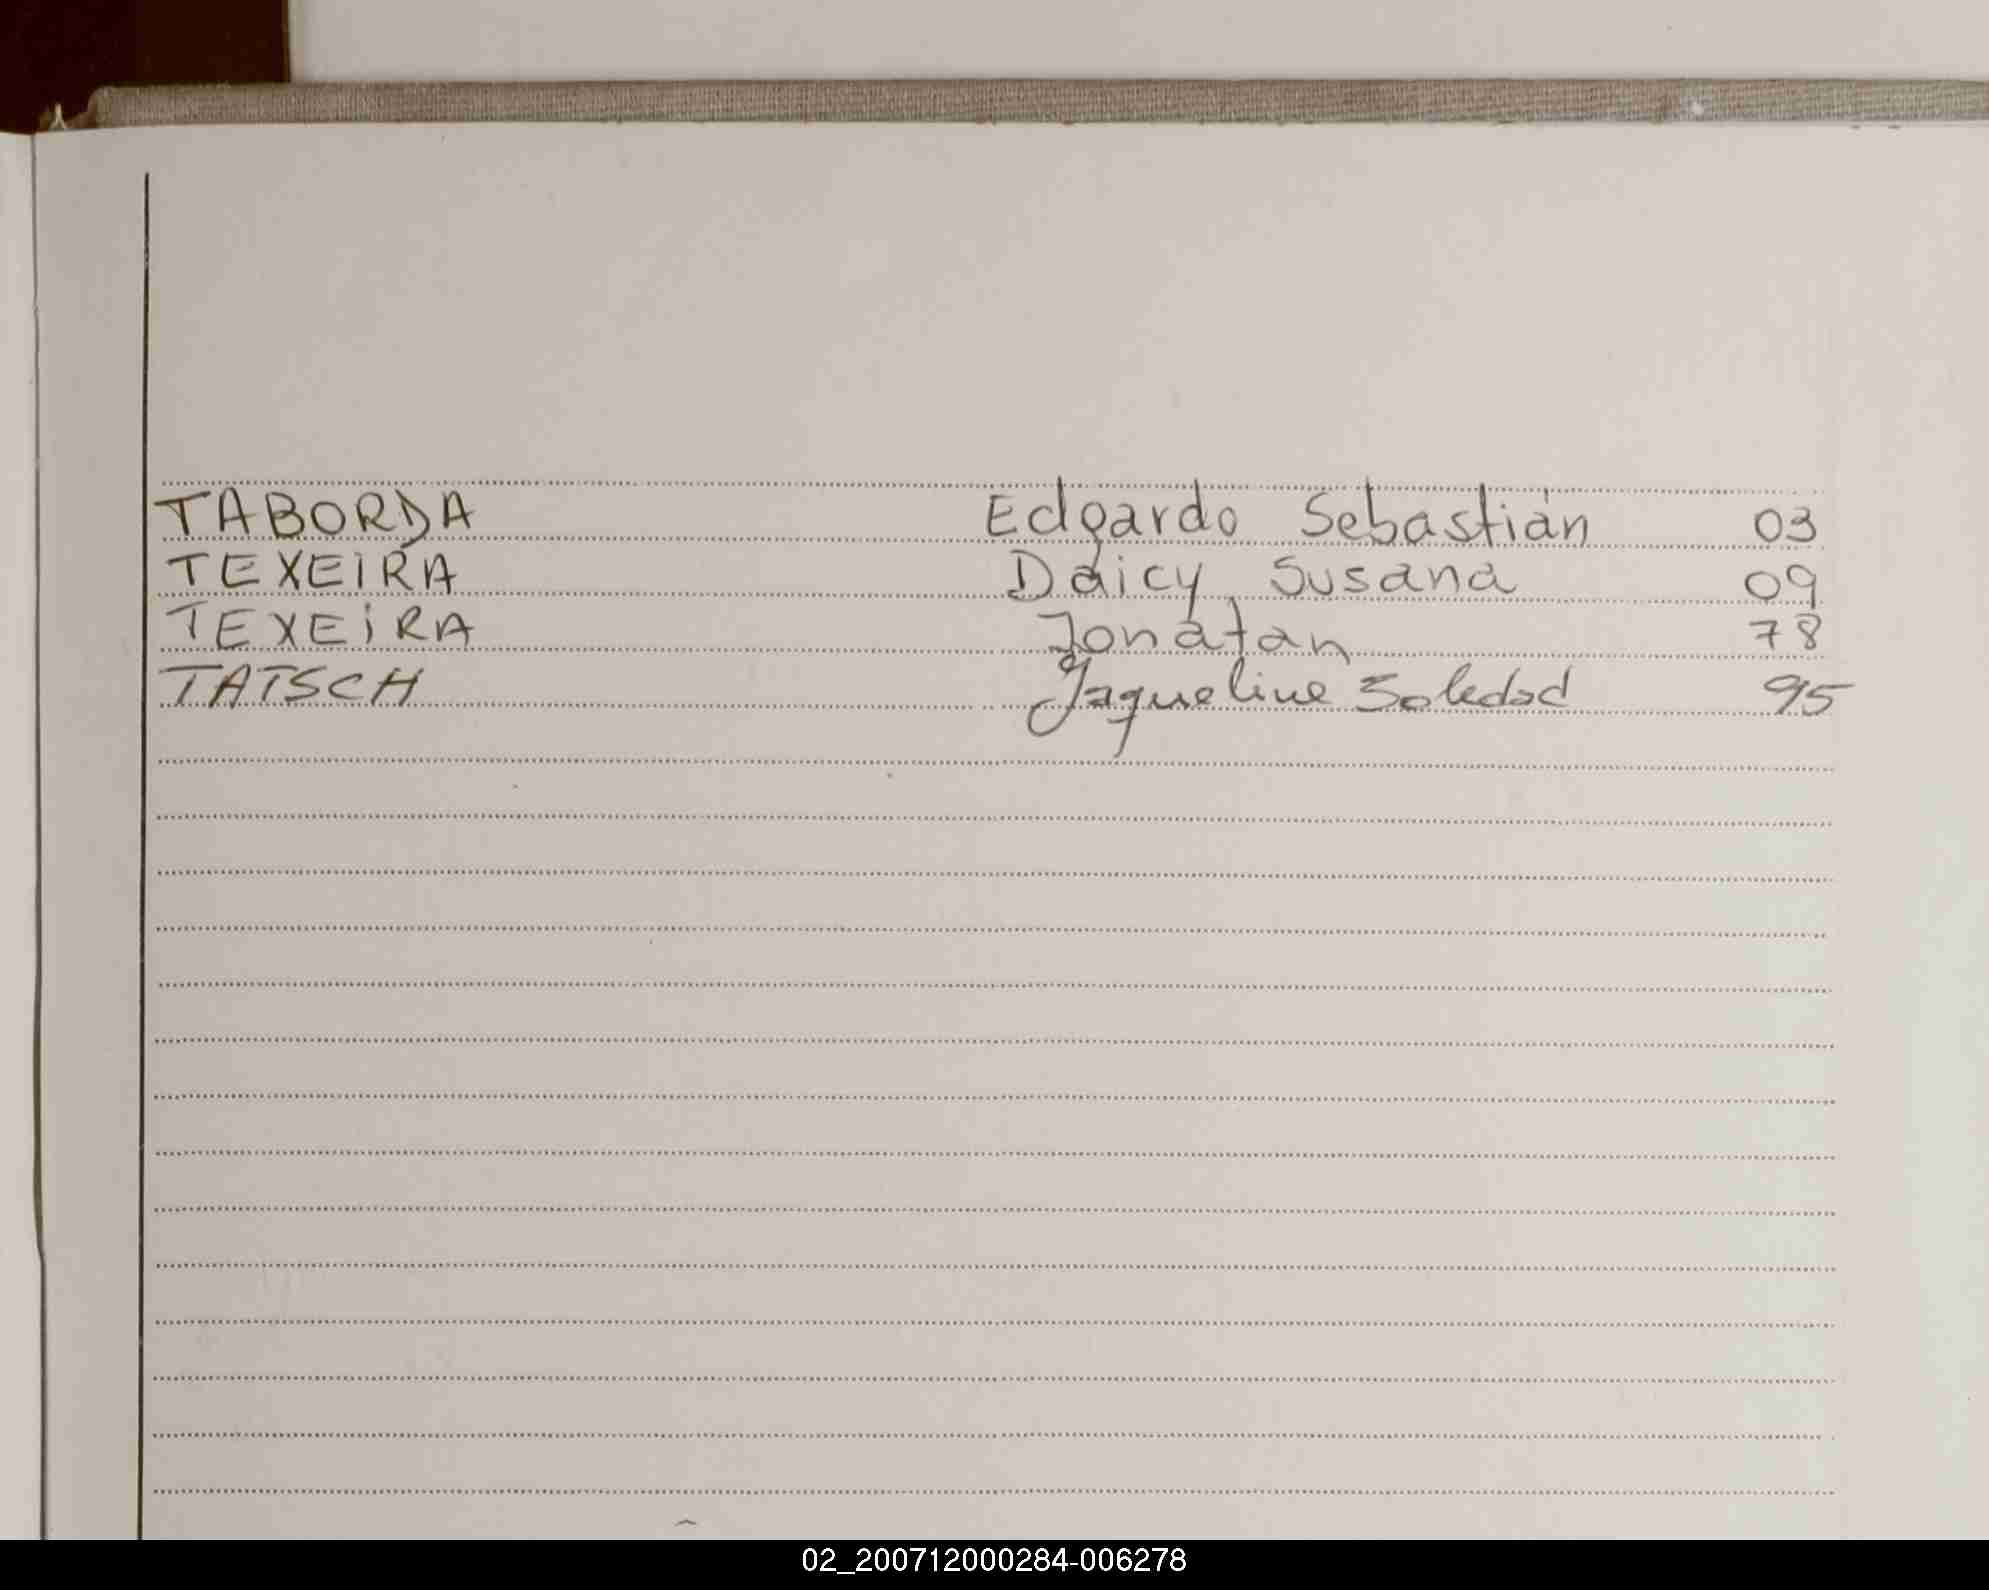 TABORDA Edgardo Sebastián 03
TEXEIRA Daicy Susana 09
TEXEIRA Jonatan 78
TATSCH Jaqueline Soledad 95
02_200712000284-006278